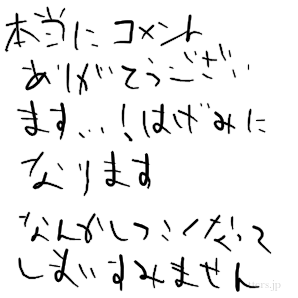 本当に コメント
ありがとうござい
ます…！はげみに
なります
なんかしつこくなって
しまいすみません